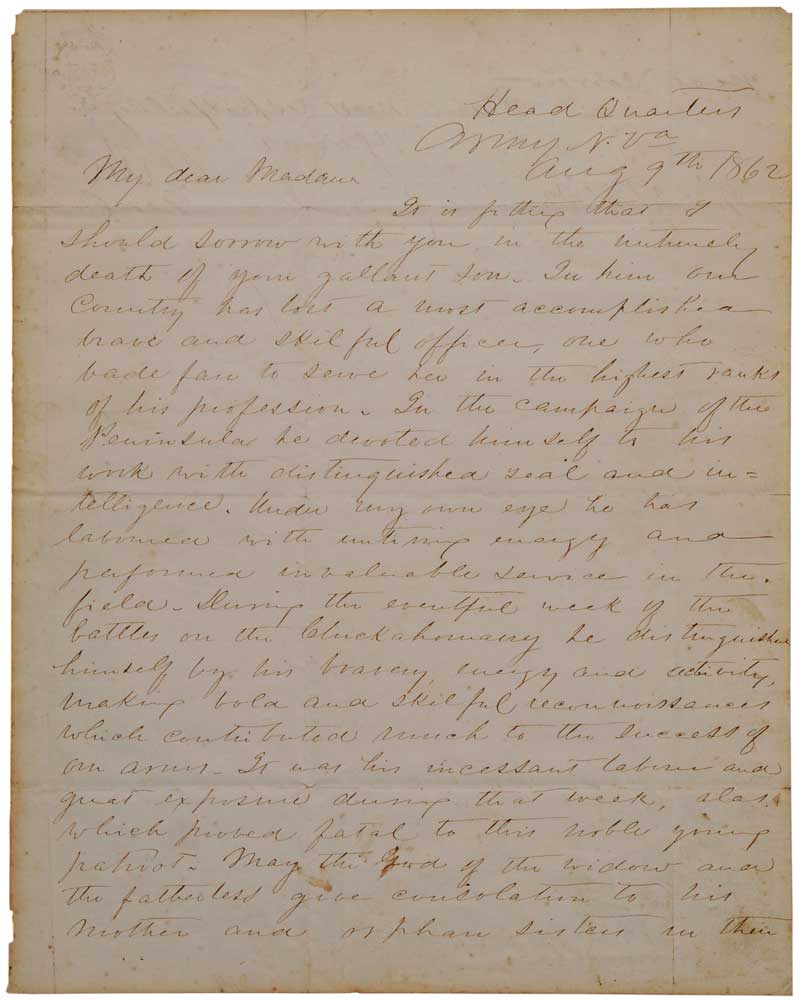 Head Quarters
Army N. Va
Aug 9th 1862
My dear Madam
It is fitting that I
should sorrow with you in the untimely
death of your gallant son. In him our
Country has lost a most accomplished
brave and skilful officer, one who
bade fair to serve her in the highest ranks
of his profession. In the campaign of the
Peninsula he devoted himself to his
work with distinguished zeal and in=
telligence. Under my own eye he has
laboured with untiring energy and
performed invaluable service in the
field. During the eventful week of the
battles on the Chickahominy he distinguished
himself by his bravery, energy and activity,
making bold and skilful reconnoissances
which contributed much to the success of
our arms. It was his incessant labour and
great exposure during that week, alas,
which proved fatal to this noble young
patriot. May the God of the widow and
the fatherless give consolation to his
mother and orphan sisters in their